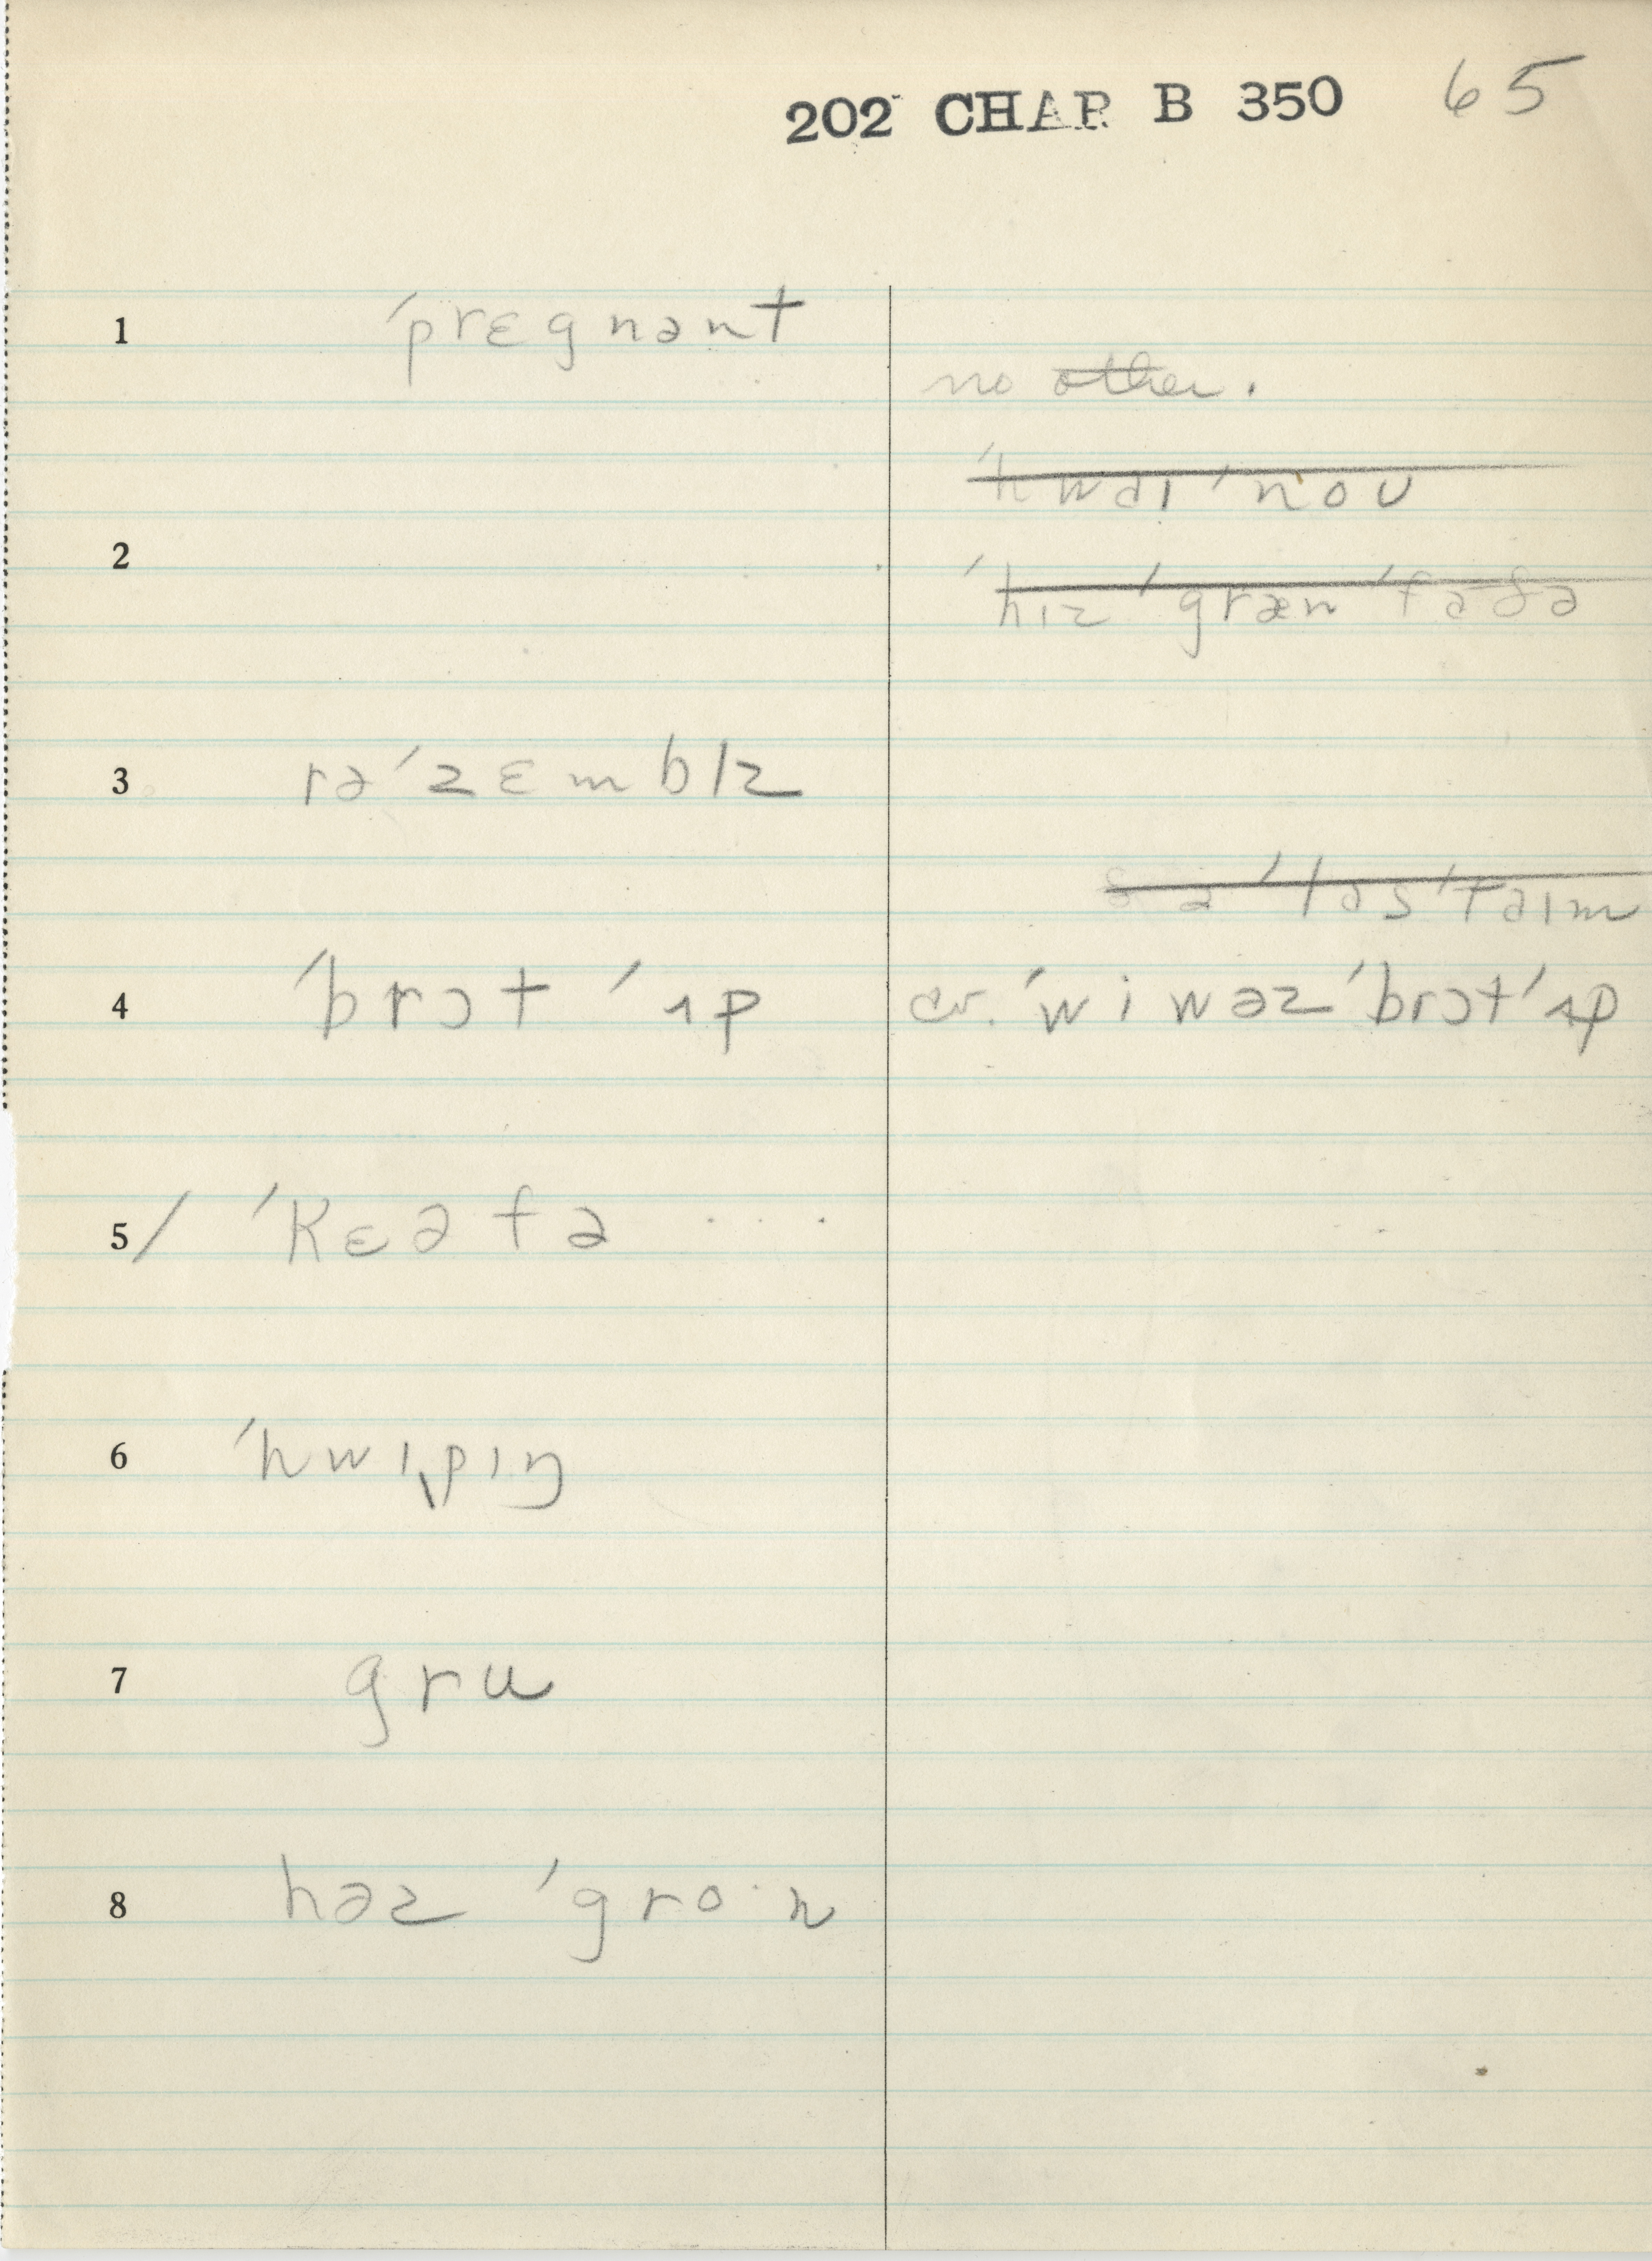 202 CHAR B 350 65
1 ′prɛgnənt
no other.
′hwəɪ ′noʊ
2
′hɪz ′græn ′faðə
3 rə′zɛmblz
ðə ′ləs ′taɪm
4 ′brɔt ′ʌp cv. ′wi wəz ′brɔt ′ʌp
5 / ′kɛə fə ...
6 ′hwɪpɪŋ
7 gru
8 həz ′gro·n